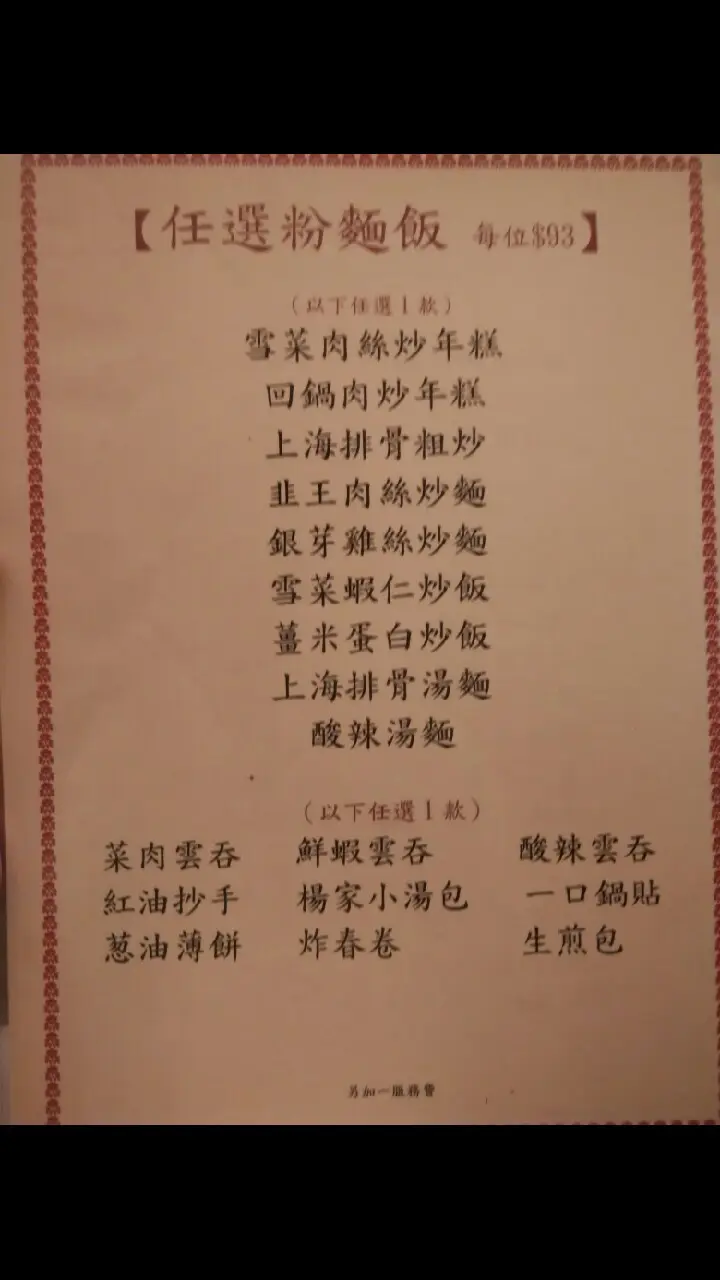 【任選粉麵飯 每位$93】
（以下任選1款）
雪菜肉絲炒年糕
回鍋肉炒年糕
上海排骨粗炒
韭王肉絲炒麵
銀芽雞絲炒麵
雪菜蝦仁炒飯
薑米蛋白炒飯
上海排骨湯麵
酸辣湯麵
（以下任選1款）
菜肉雲吞 鮮蝦雲吞 酸辣雲吞
紅油抄手 楊家小湯包 一口鍋貼
葱油薄餅 炸春卷 生煎包
另加一服務費